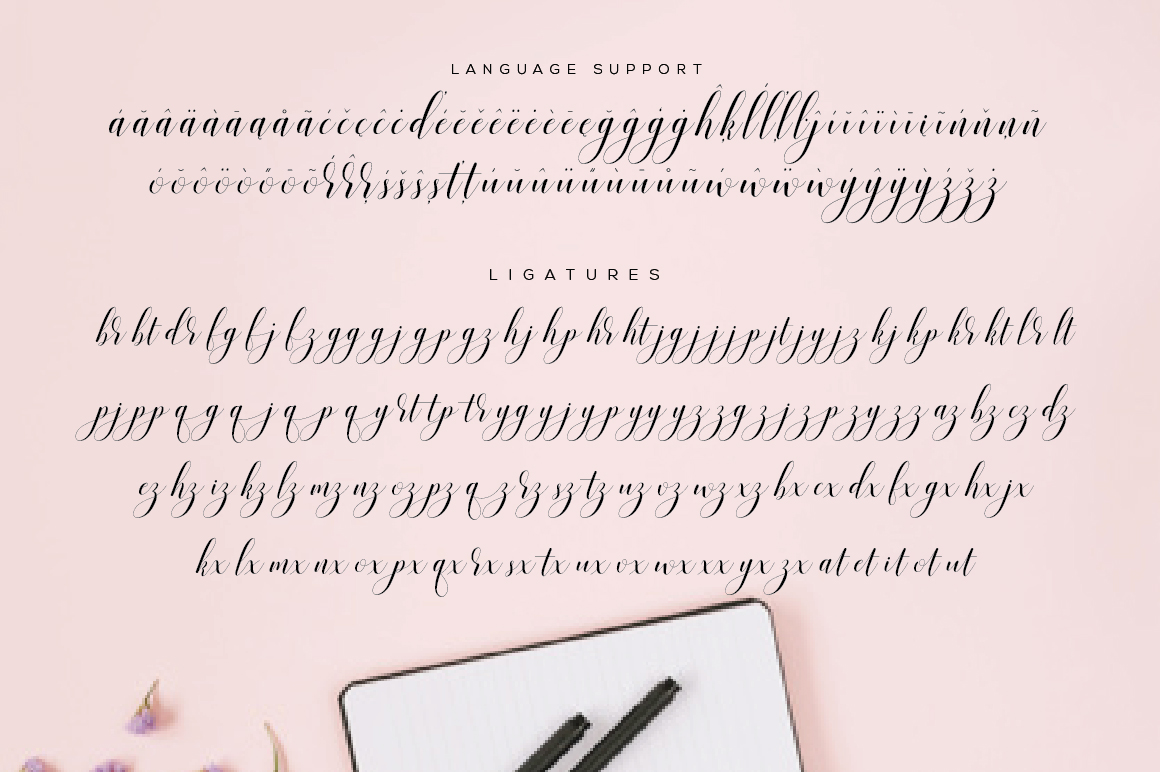 LANGUAGE SUPPORT
áăâäàāąåãćčçĉċďéĕěêëėèēęğĝģġĥķĺľļŀĵíĭîïìīįĩńňņñ
óŏôöòőōõŕřŗśšşŝșťțúŭûüűùūůũẃŵẅẁýŷÿỳźžż
LIGATURES
br bt dr fg fj fz gg gj gp gz hj hp hr ht jg jj jp jt jy jz kj kp kr kt lr lt
pj pp qg qj qp qy rt tp tr yg yj yp yy yz zg zj zp zy zz az bz cz dz
ez hz iz kz lz mz nz oz pz qz rz sz tz uz vz wz xz bx cx dx fx gx hx jx
kx lx mx nx ox px qx rx sx tx ux vx wx xx yx zx at et it ot ut